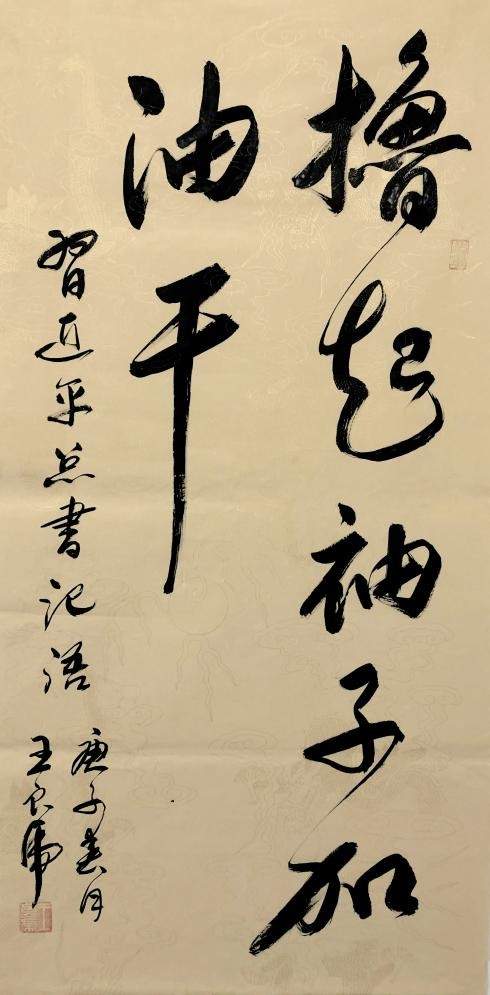 撸起袖子加
油干
習近平总書记语
庚子春月
王良虎